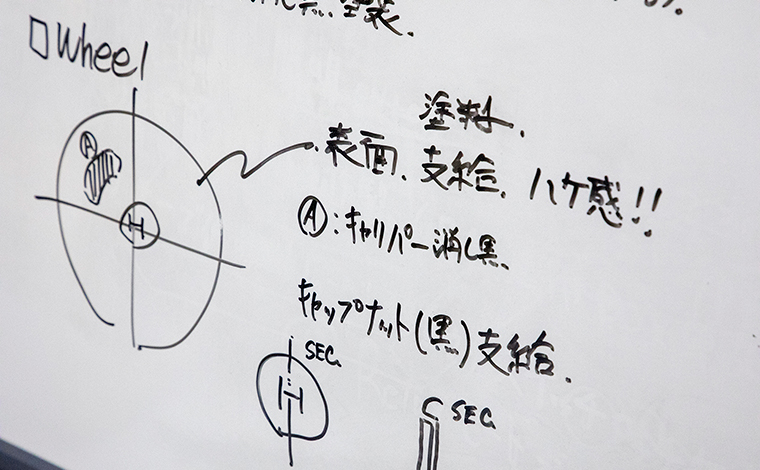 塗装.
□Wheel
塗料.
表面. 支給. ハケ感!!
Ⓐ
Ⓐ:キャリパー消し黒.
H
キャップナット(黒)支給.
SEC.
H
SEC.